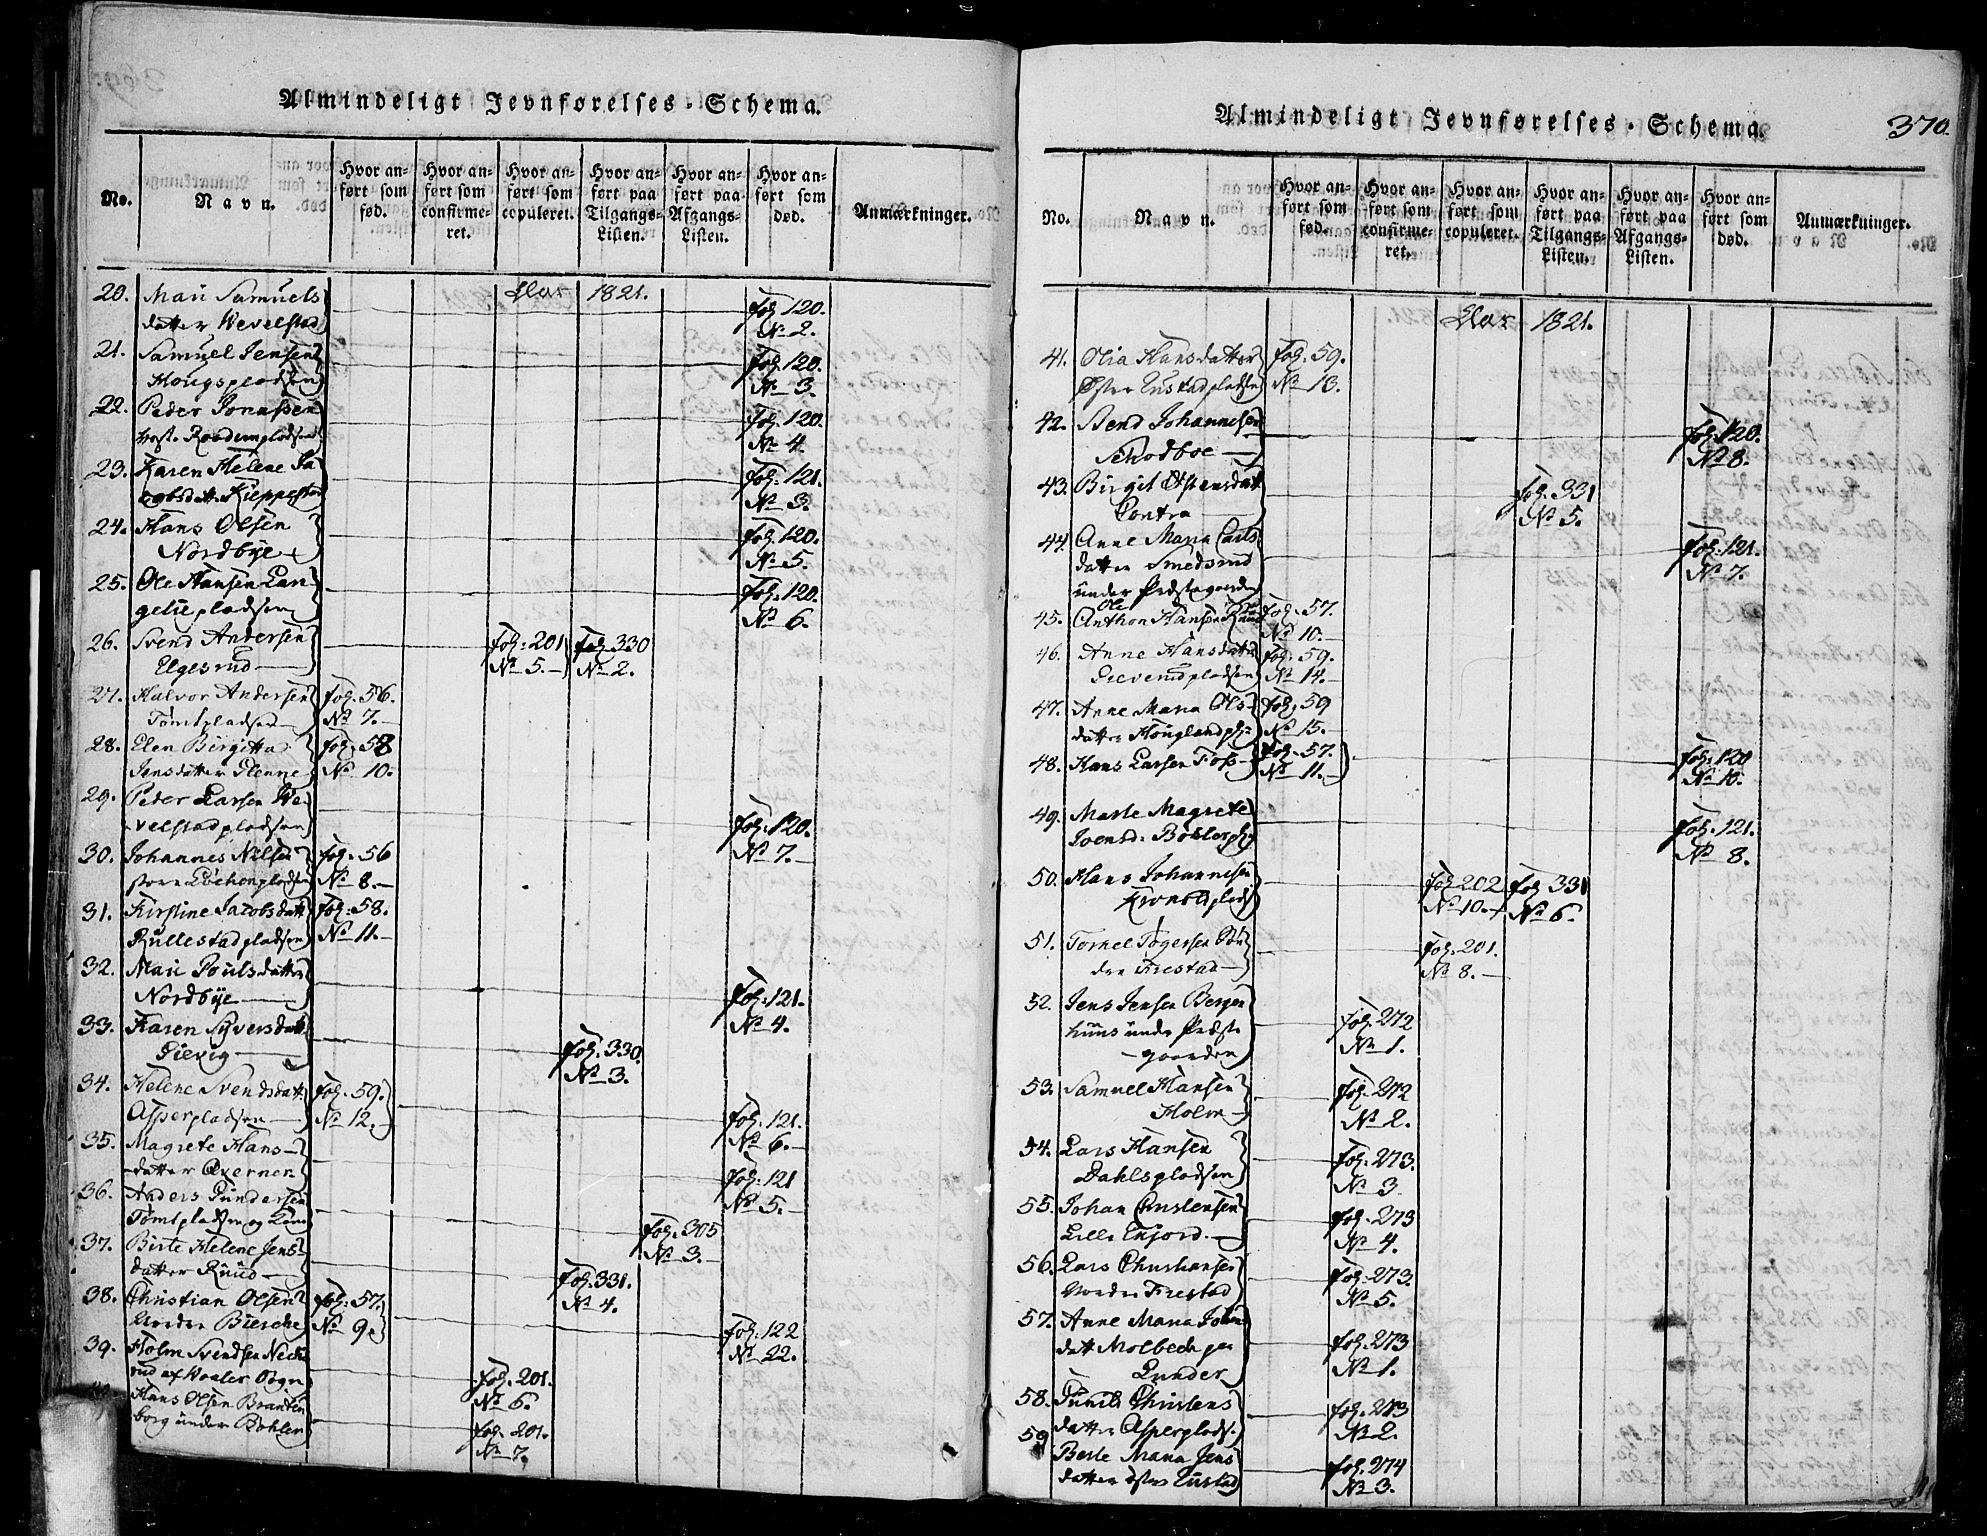 Almindeligt Jevnførelses-Schema.
No.
Navn.
Hvor anført som fød.
Hvor anført som confirmeret.
Hvor anført som copuleret.
Hvor anført paa Tilgangs-Listen.
Hvor anført paa Afgangs-Listen.
Hvor anført som død.
Anmærkninger.
Aar 1821.
20. Mari Samuels fol. 120.
datter Wevelstad No 2.
21. Samuel Jensen fol. 120.
Hougspladsen No 3.
22. Peder Jonassen fol. 120.
Pladsen No 4.
23. Karen Helene Ja fol. 121.
cobsdatt. Kieppestad No 3.
24. Hans Olsen fol. 120.
Nordbye No 5.
25. Ole Hansen Lan fol. 120.
gelie pladsen No 6.
26. Svend Andersen fol. 201 fol. 330
Elgesrud No 5. No 2.
27. Halvor Andersen fol. 56.
Tomtpladsen No 7.
28. Elen Birgitta fol. 58
Jensdatter Glenne No 10.
29. Peder Larsen We
velstadpladsen fol. 120. No 7.
30. Johannes Nilsen fol. 56
store pladsen No 8.
31. Kirstine Jacobsdatt fol. 58.
Rullestadpladsen No 11.
32. Mari Poulsdatter fol. 121.
Nordbye No 4.
33. Karen Syversdatt fol. 330.
No 3.
34. Helene Svendsdatt fol. 59.
Asperpladsen No 12. fol. 121. No 6.
35. Magrete Hans
datter Qverner fol. 121 No 5.
36. Anders Gundersen
Tomtpladsen og fol. 305 No 3.
37. Birte Helene Jens
datter Ruud fol. 331. No 4.
38. Christian Olsen fol. 57.
Nordre Biercke No 9. fol. 122 No 22.
39. Holm Svendsen
af Waaler Sogn fol. 201. No 6.
40. Hans Olsen Branten
borg under Bøhler fol. 201. No 7.
Almindeligt Jevnførelses-Schema.
370.
No.
Navn.
Hvor anført som fød.
Hvor anført som confirmeret.
Hvor anført som copuleret.
Hvor anført paa Tilgangs-Listen.
Hvor anført paa Afgangs-Listen.
Hvor anført som død.
Anmærkninger.
Aar 1821.
41. Olia Hansdatter fol. 59.
Øster pladsen No 13.
42. Svend Johannesen fol. 120.
Skodboe No 8.
43. Birgit Østensdatt fol. 331
No 5.
44. Anne Maria Carls fol. 121.
datter Smedsrud No 7.
under Præstegaarden
Ole
45. Anthon Hansen Ruud fol. 57.
No 10.
46. Anne Hansdatter fol. 59.
pladsen No 14.
47. Anne Maria Ols fol. 59
datter Houglandpl. No 15.
48. Hans Larsen Foss fol. 57. fol. 120
No 11. No 10.
49. Marte Magrete fol. 121.
Ivensd. Bøhlerpl. No 8.
50. Hans Johannesen fol. 202 fol. 331
plads No 10. No 6.
51. Torkel Togersen Søn fol. 201.
dre Firestad No 8.
52. Jens Jensen Bergen fol. 272
huus under Præste No 1.
gaarden
53. Samuel Hansen fol. 272
Holm No 2.
54. Lars Hansen fol. 273.
Dahlspladsen No 3
55. Johan Christensen fol. 273
Lille Enjord No 4.
56. Lars Christiansen fol. 273.
Nordre Firestad No 5.
57. Anne Maria Johan
datt Molbech paa fol. 273
Lunder No 1.
58. Christens fol. 273
datter Asperplads. No 2.
59. Berte Maria Jens fol. 274
datter østre No 3.